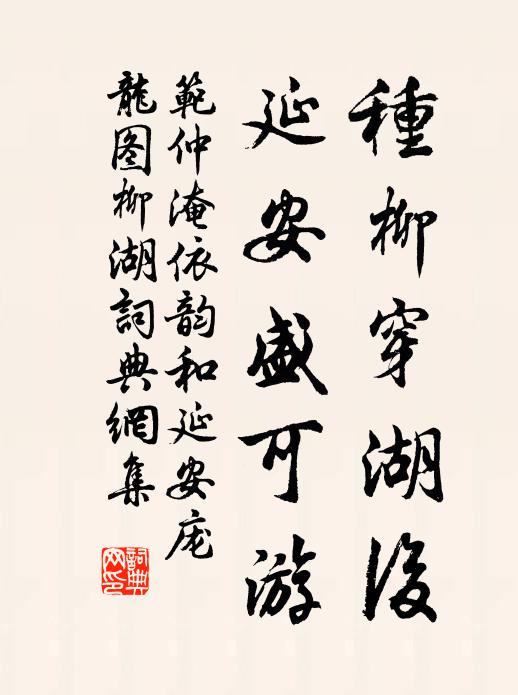 種柳穿湖後
延安盛可游
範仲淹依韵和延安庞
龍图柳湖詞典網集
詞典网印